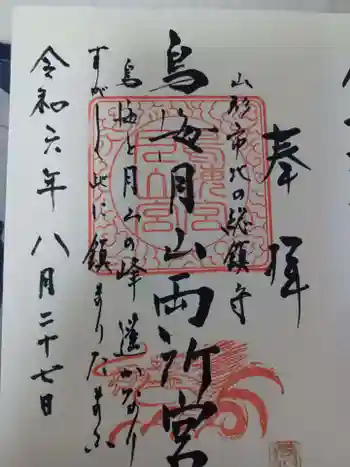 奉拝
山形市北の総鎮守
鳥海月山両所宮
鳥海と月山の峰 遥かなり
すがしく此に鎮まりたまふ
令和六年八月二十七日